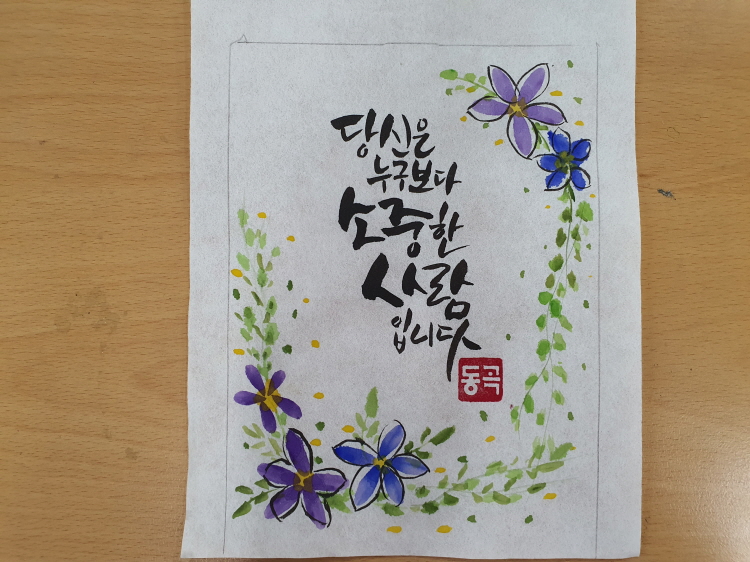 당신은
누구보다
소중한
사람
입니다
동곡